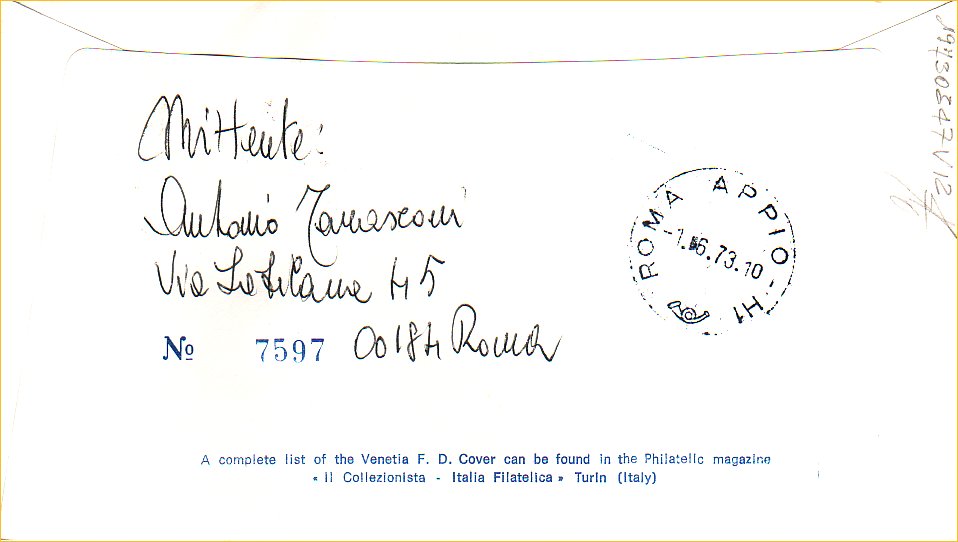 Mittente:
Antonio
Via 45
Nº 7597 00184 Roma
ROMA APPIO - H1
-1.6.73.10
A complete list of the Venetia F. D. Cover can be found in the Philatelic magazine
« Il Collezionista - Italia Filatelica » Turin (Italy)